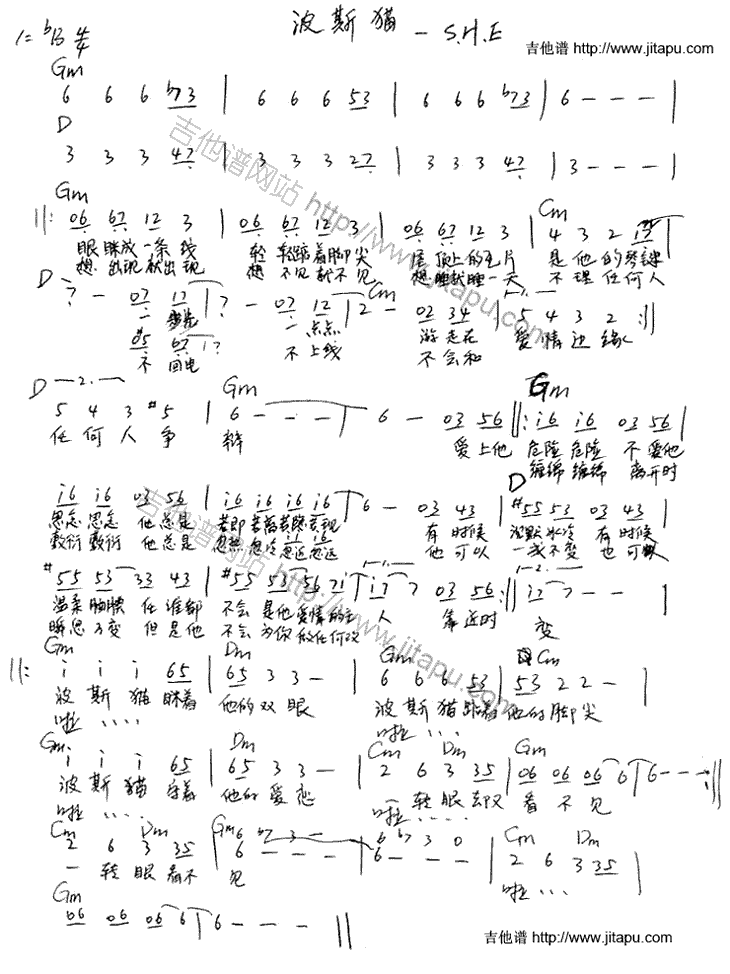 波斯猫 — S.H.E
吉他谱 http://www.jitapu.com
1=bB 4/4
Gm
6 6 6 b73 | 6 6 6 53 | 6 6 6 b73 | 6 - - - |
D
3 3 3 47 | 3 3 3 27 | 3 3 3 47 | 3 - - - |
Gm Cm
||: 06 67 12 3 | 06 67 12 3 | 06 67 12 3 | 4 3 2
眼眯成一条线 轻轻踮着脚尖 屋顶上的毛片 是他的琴键
想出现就出现 想不见就不见 想睡就睡一天 不理任何人
D Cm 1.
7 - 07 17 | 7 - 07 12 | 2 - 02 34 | 5 4 3 2 :||
一步步 一点点 游走在 爱情边缘
#05 67 17
不回电 不上线 不会和
D 2. Gm Gm
5 4 3 #5 | 6 - - - | 6 - 03 56 ||: i6 i6 03 56 |
任何人争 辩 爱上他 危险危险 不爱他
缠绵缠绵 离开时
D
i6 i6 03 56 | i6 i6 i6 i6 | 6 - 03 43 | #55 53 03 43 |
思念思念 他总是 若即若离若隐若现 有时候 沉默冰冷 有时候
敷衍敷衍 他总是 忽热忽冷忽近忽远 他可以 一成不变 也可以
#55 53 33 43 | #55 53 56 7i | i7 7 03 56 :|| i7 7 - - |
1. 2.
温柔腼腆 任谁都 不会是他爱情的主 人 靠近时 变
瞬息万变 但是他 不会为你做任何改
Gm Gm Cm
||: i i i 65 | 65 3 3 - | 6 6 6 53 | 53 2 2 - |
波斯猫眯着 他的双眼 波斯猫踮着 他的脚尖
啦.... 啦....
Gm Dm Cm Dm Gm
i i i 65 | 65 3 3 - | 2 6 3 35 | 06 06 06 6 | 6 - - - :||
波斯猫守着 他的爱恋 一转眼却又 看不见
啦.... 啦...
Cm Dm Gm Cm Dm
2 6 3 35 | 6 - - - | 6 - - - | 2 6 3 35 |
6 b7 3 - 6 b7 3 0
一转眼看不 见 啦...
Gm
06 06 06 6 | 6 - - - ||
吉他谱 http://www.jitapu.com
吉他谱网站 http://www.jitapu.com
吉他谱网站 http://www.jitapu.com